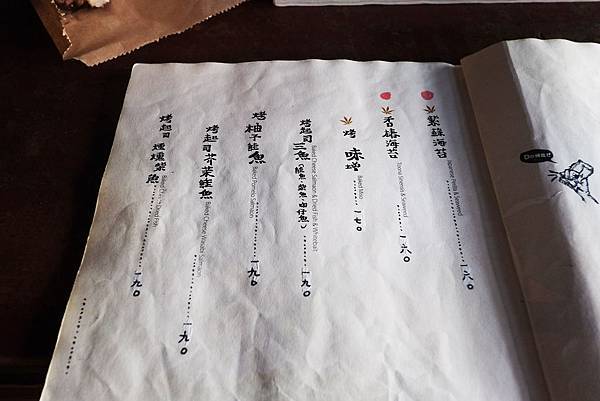 紫蘇海苔 Japanese Perilla & Seaweed 一六〇
香椿海苔 Toona Sinensis & Seaweed 一六〇
烤 味增 Baked Miso 一七〇
烤起司三魚(鮭魚、柴魚、吻仔魚) Baked Cheese Salmaon & Dried Fish & Whitebait 一九〇
烤 柚子鮭魚 Baked Pomelo Salmaon 一九〇
烤起司芥茉鮭魚 Baked Cheese Wasabi Salmaon 一九〇
烤起司 煙燻柴魚 Dried Fish 一九〇